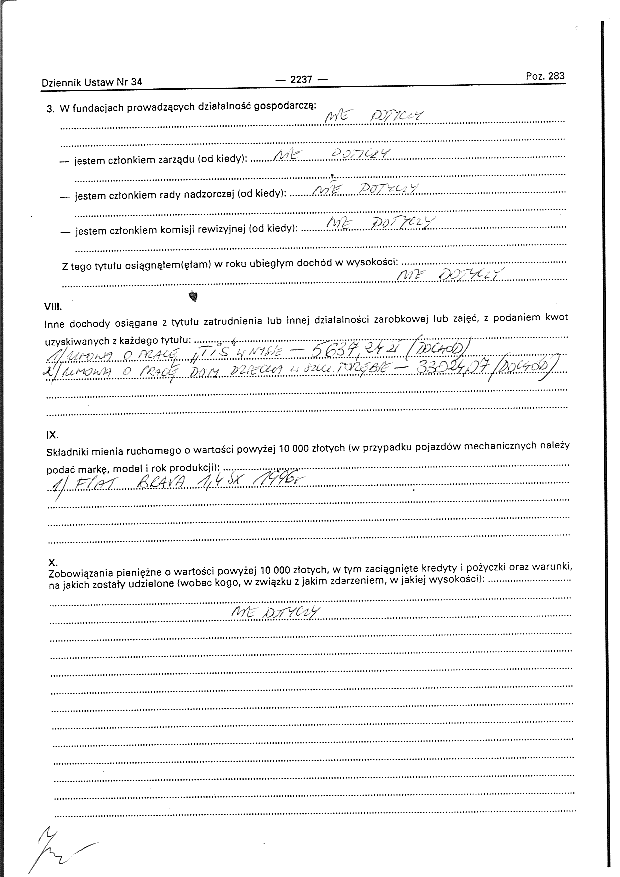 Dziennik Ustaw Nr 34 — 2237 — Poz. 283
3. W fundacjach prowadzących działalność gospodarczą:
NIE DOTYCZY
— jestem członkiem zarządu (od kiedy): NIE DOTYCZY
— jestem członkiem rady nadzorczej (od kiedy): NIE DOTYCZY
— jestem członkiem komisji rewizyjnej (od kiedy): NIE DOTYCZY
Z tego tytułu osiągnąłem(ęłam) w roku ubiegłym dochód w wysokości:
NIE DOTYCZY
VIII.
Inne dochody osiągane z tytułu zatrudnienia lub innej działalności zarobkowej lub zajęć, z podaniem kwot
uzyskiwanych z każdego tytułu:
1/ UMOWA O PRACĘ W NYSIE — 5639,24 zł (DOCHÓD)
2/ UMOWA O PRACĘ DOM DZIECKA — 33024,07 (DOCHÓD)
IX.
Składniki mienia ruchomego o wartości powyżej 10 000 złotych (w przypadku pojazdów mechanicznych należy
podać markę, model i rok produkcji):
1/ FIAT BRAVA 1,4 SX 1996r
X.
Zobowiązania pieniężne o wartości powyżej 10 000 złotych, w tym zaciągnięte kredyty i pożyczki oraz warunki,
na jakich zostały udzielone (wobec kogo, w związku z jakim zdarzeniem, w jakiej wysokości):
NIE DOTYCZY